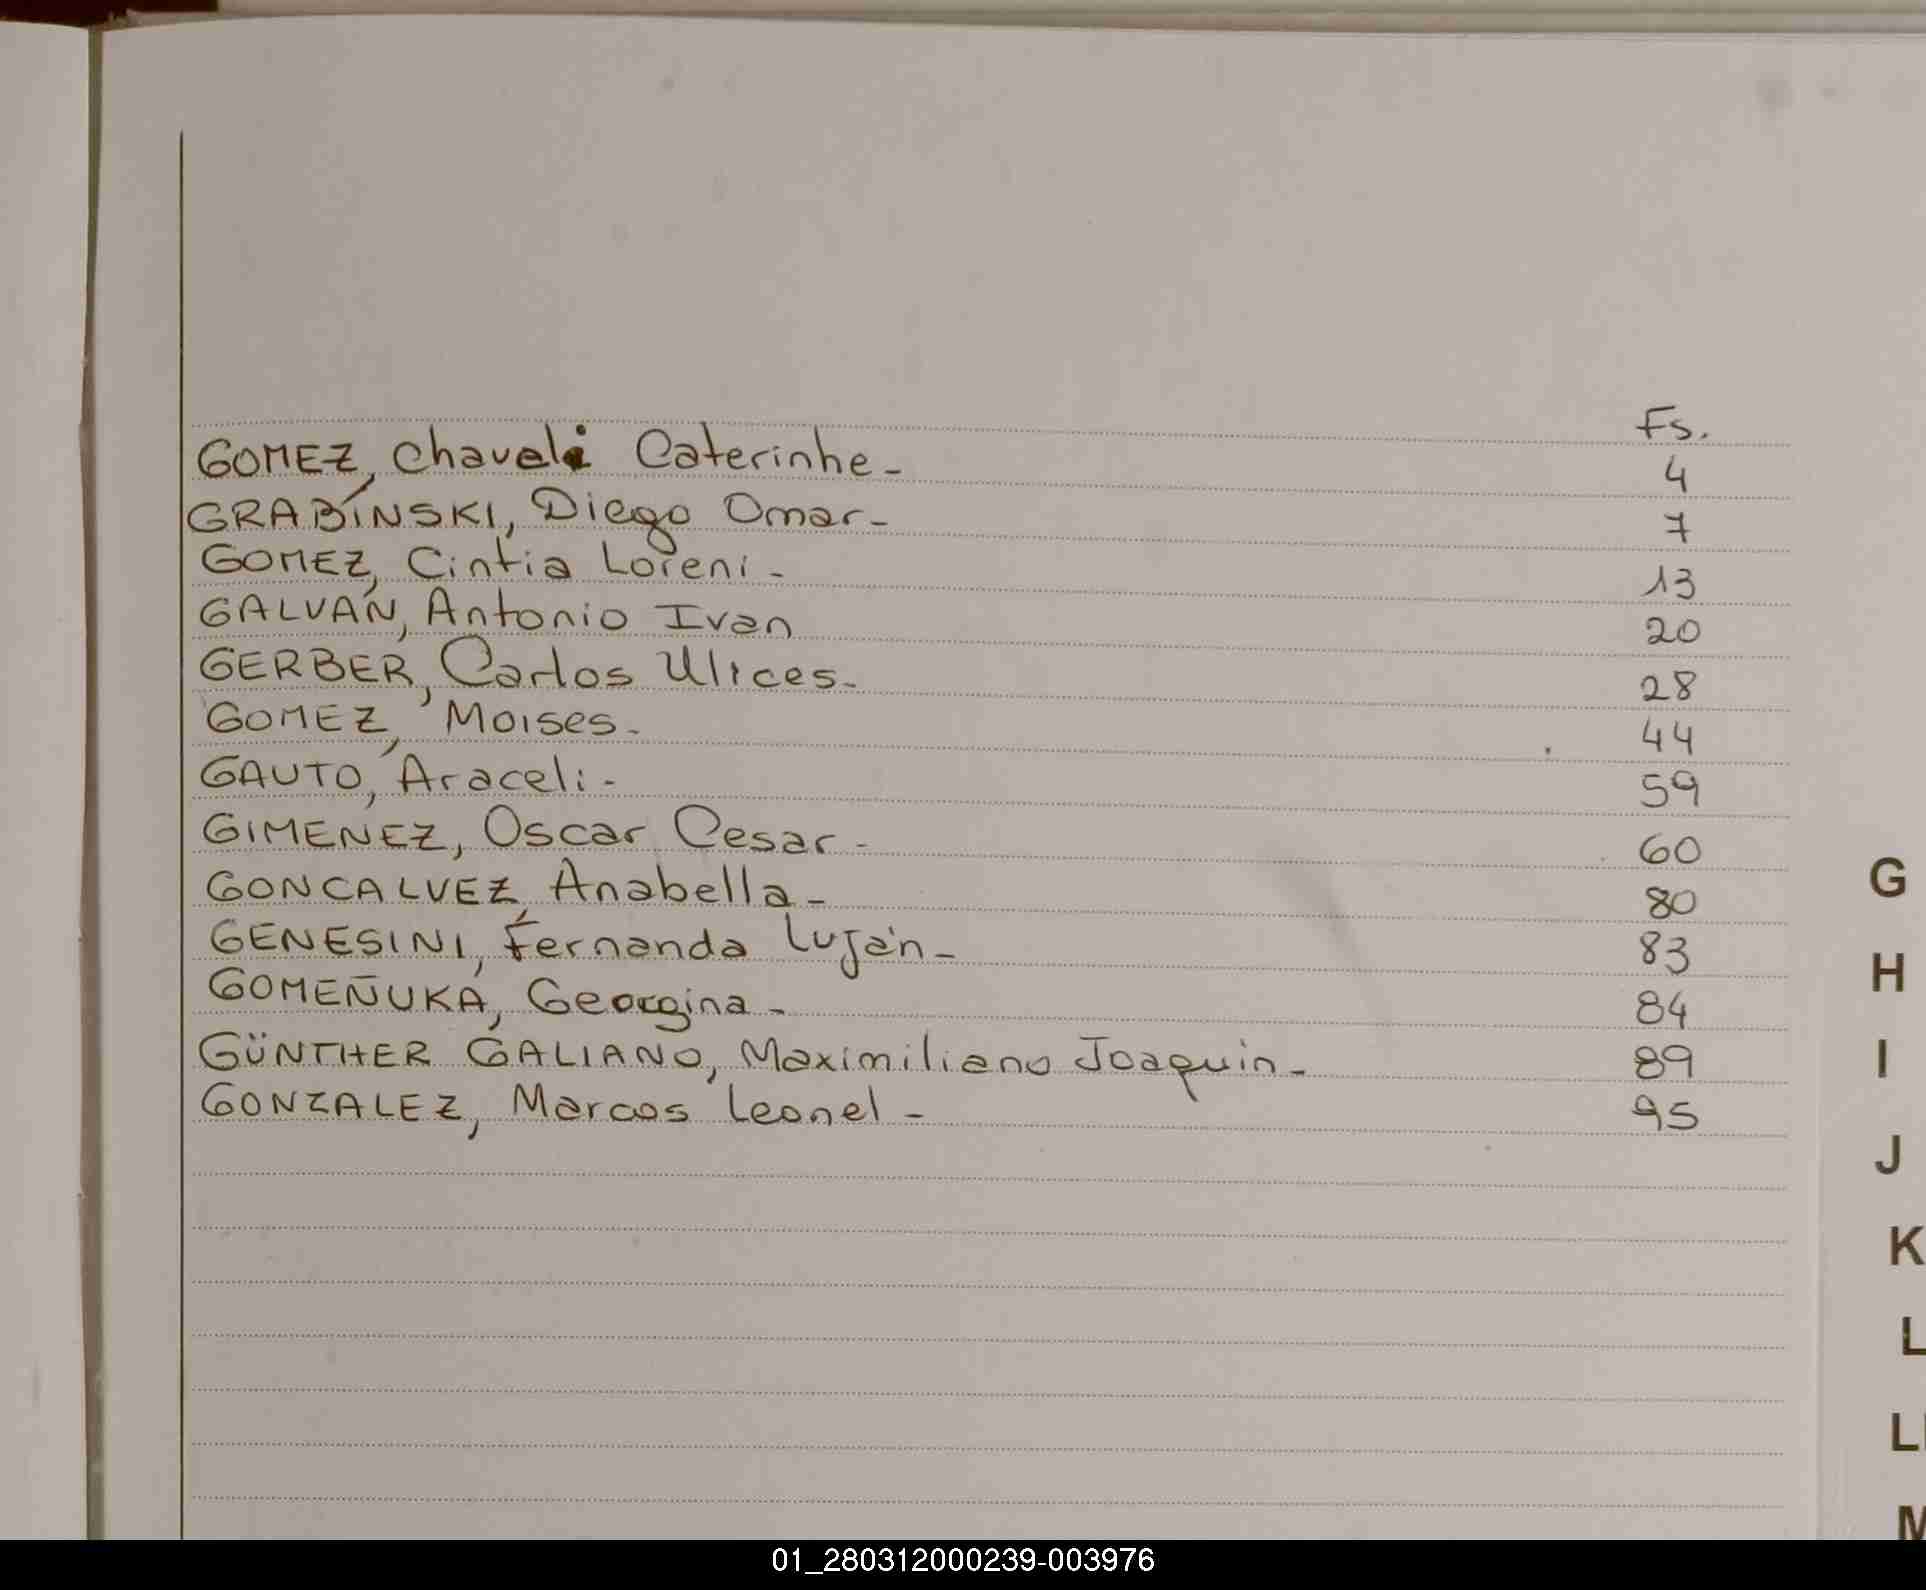 Fs.
GOMEZ, Chaveli Caterinhe - 4
GRABÍNSKI, Diego Omar - 7
GOMEZ, Cintia Loreni - 13
GALVÁN, Antonio Ivan 20
GERBER, Carlos Ulices - 28
GOMEZ, Moises - 44
GAUTO, Araceli - 59
GIMENEZ, Oscar Cesar - 60
GONCALVEZ, Anabella - 80
GENESINI, Fernanda Luján - 83
GOMEÑUKA, Georgina - 84
GÜNTHER GALIANO, Maximiliano Joaquin - 89
GONZALEZ, Marcos Leonel - 95
G
H
I
J
K
L
LL
M
01_280312000239-003976